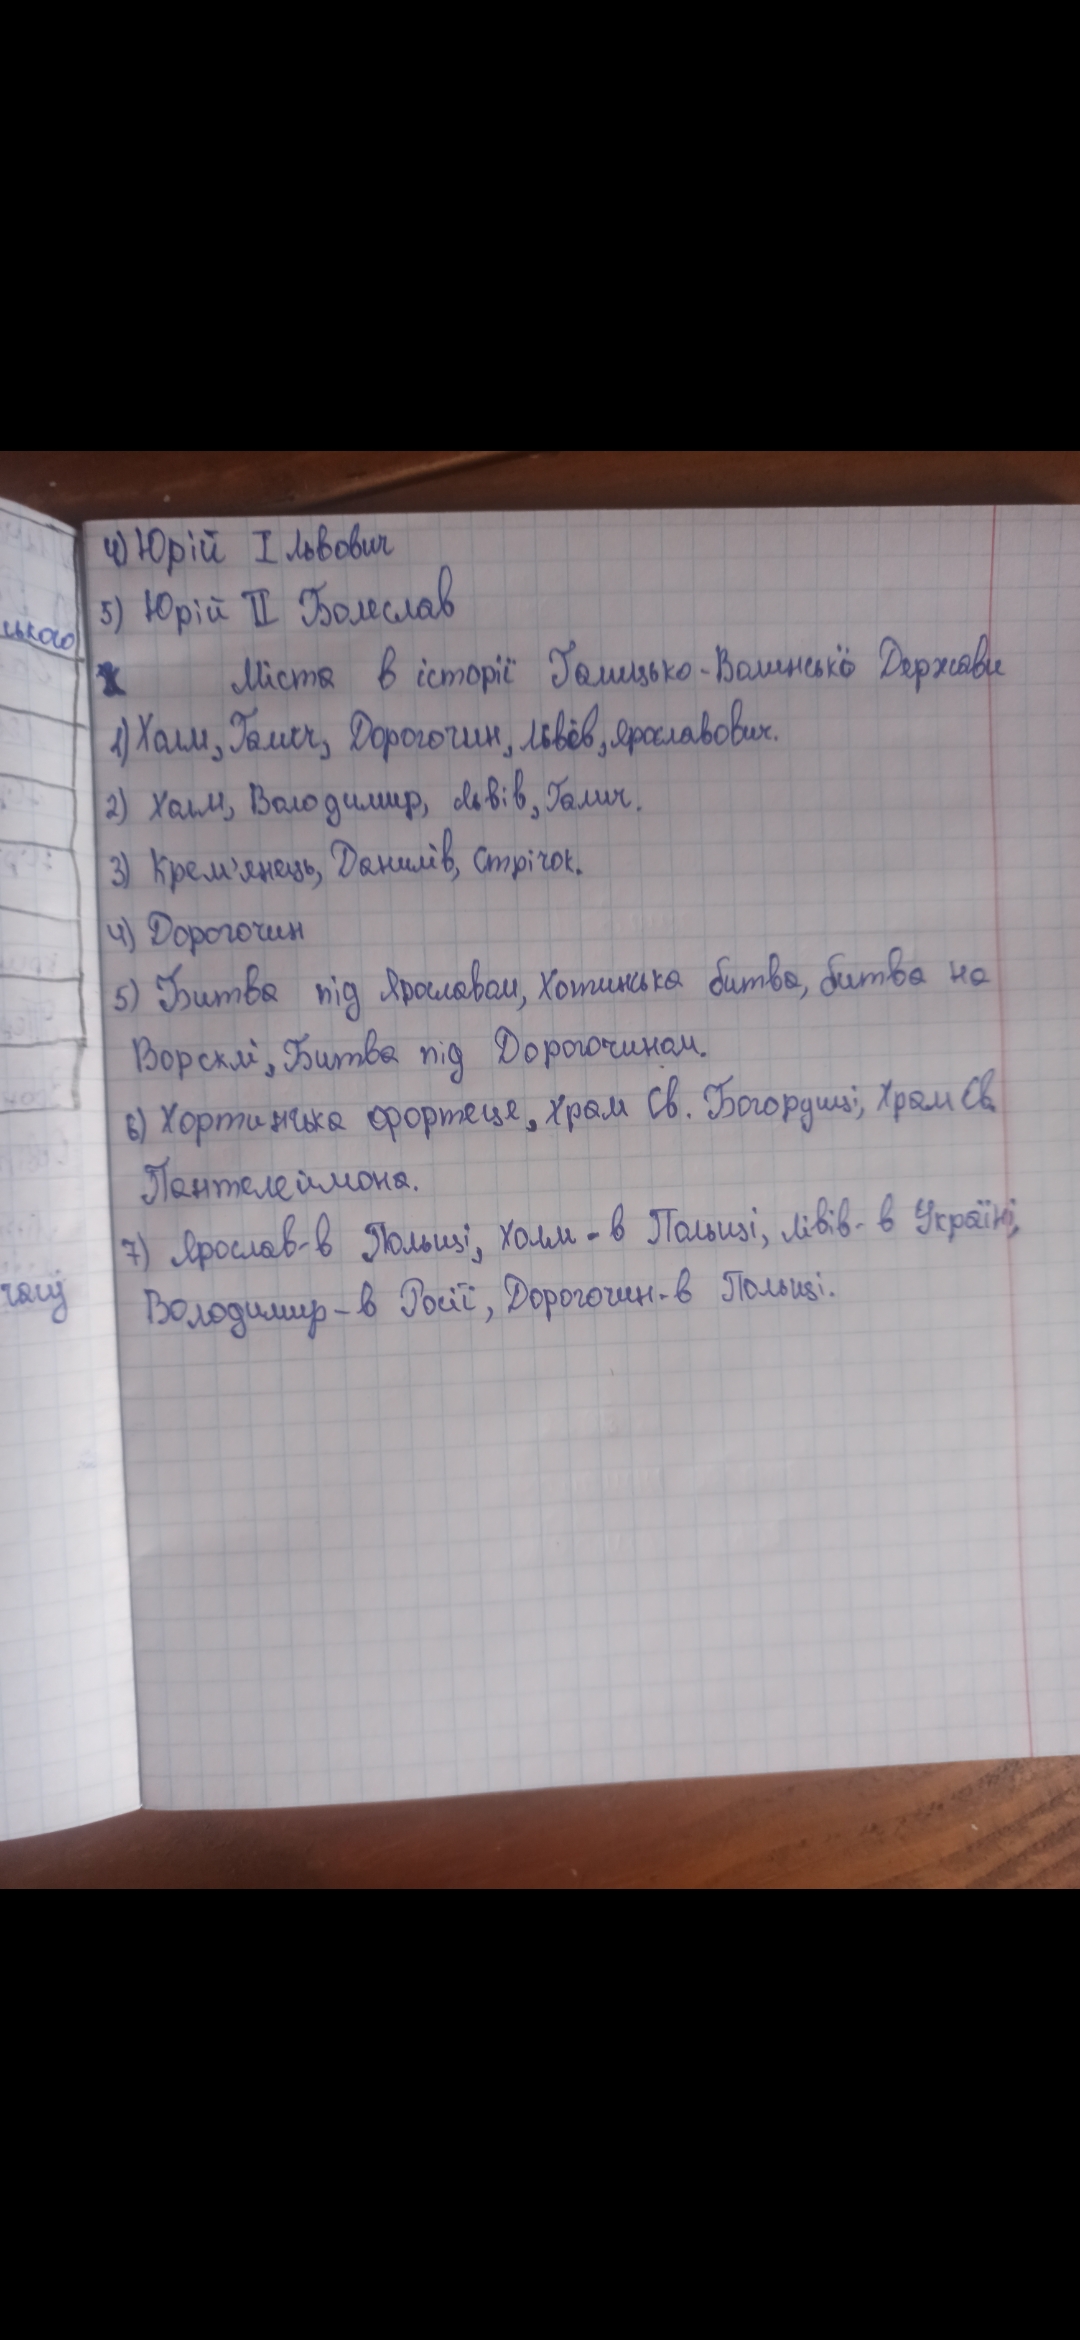 4) Юрій І Львович
5) Юрій ІІ Болеслав
ського
Міста в історії Галицько-Волинської Держави
1) Холм, Галич, Дорогочин, Львів, Ярославович.
2) Холм, Володимир, Львів, Галич.
3) Крем'янець, Данилів, Стрічок.
4) Дорогочин
5) Битва під Ярославом, Хотинська битва, битва на
Ворсклі, Битва під Дорогочином.
6) Хортинська фортеце, Храм Св. Богородиці, Храм Св.
Пантелеймона.
7) Ярослав-в Польщі, Холм-в Польщі, Лівів-в Україні,
Володимир-в Росії, Дорогочин-в Польщі.